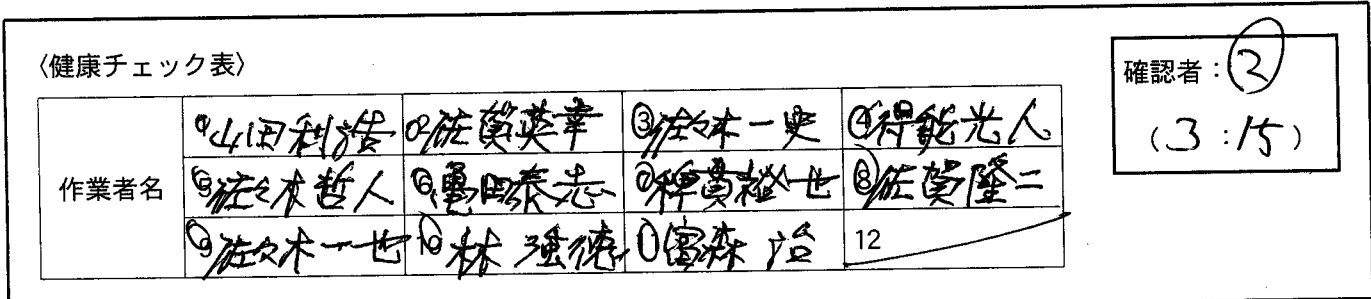 〈健康チェック表〉
確認者：②
(3:15)
作業者名
①山田利浩 ②佐賀英幸 ③佐々木一史 ④得能光人
⑤佐々木哲人 ⑥亀田泰志 ⑦ ⑧佐賀隆二
⑨佐々木一也 ⑩林 強徳 ⑪富森 治 12